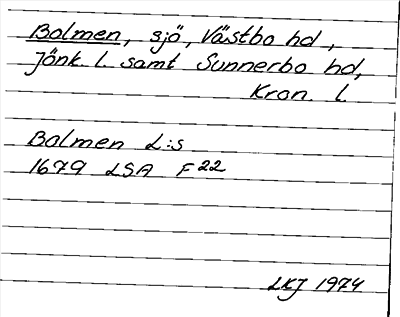 Bolmen, sjö, Västbo hd,
Jönk. l. samt Sunnerbo hd,
Kron. l.
Bolmen L:s
1679 LSA F22
LKJ 1974